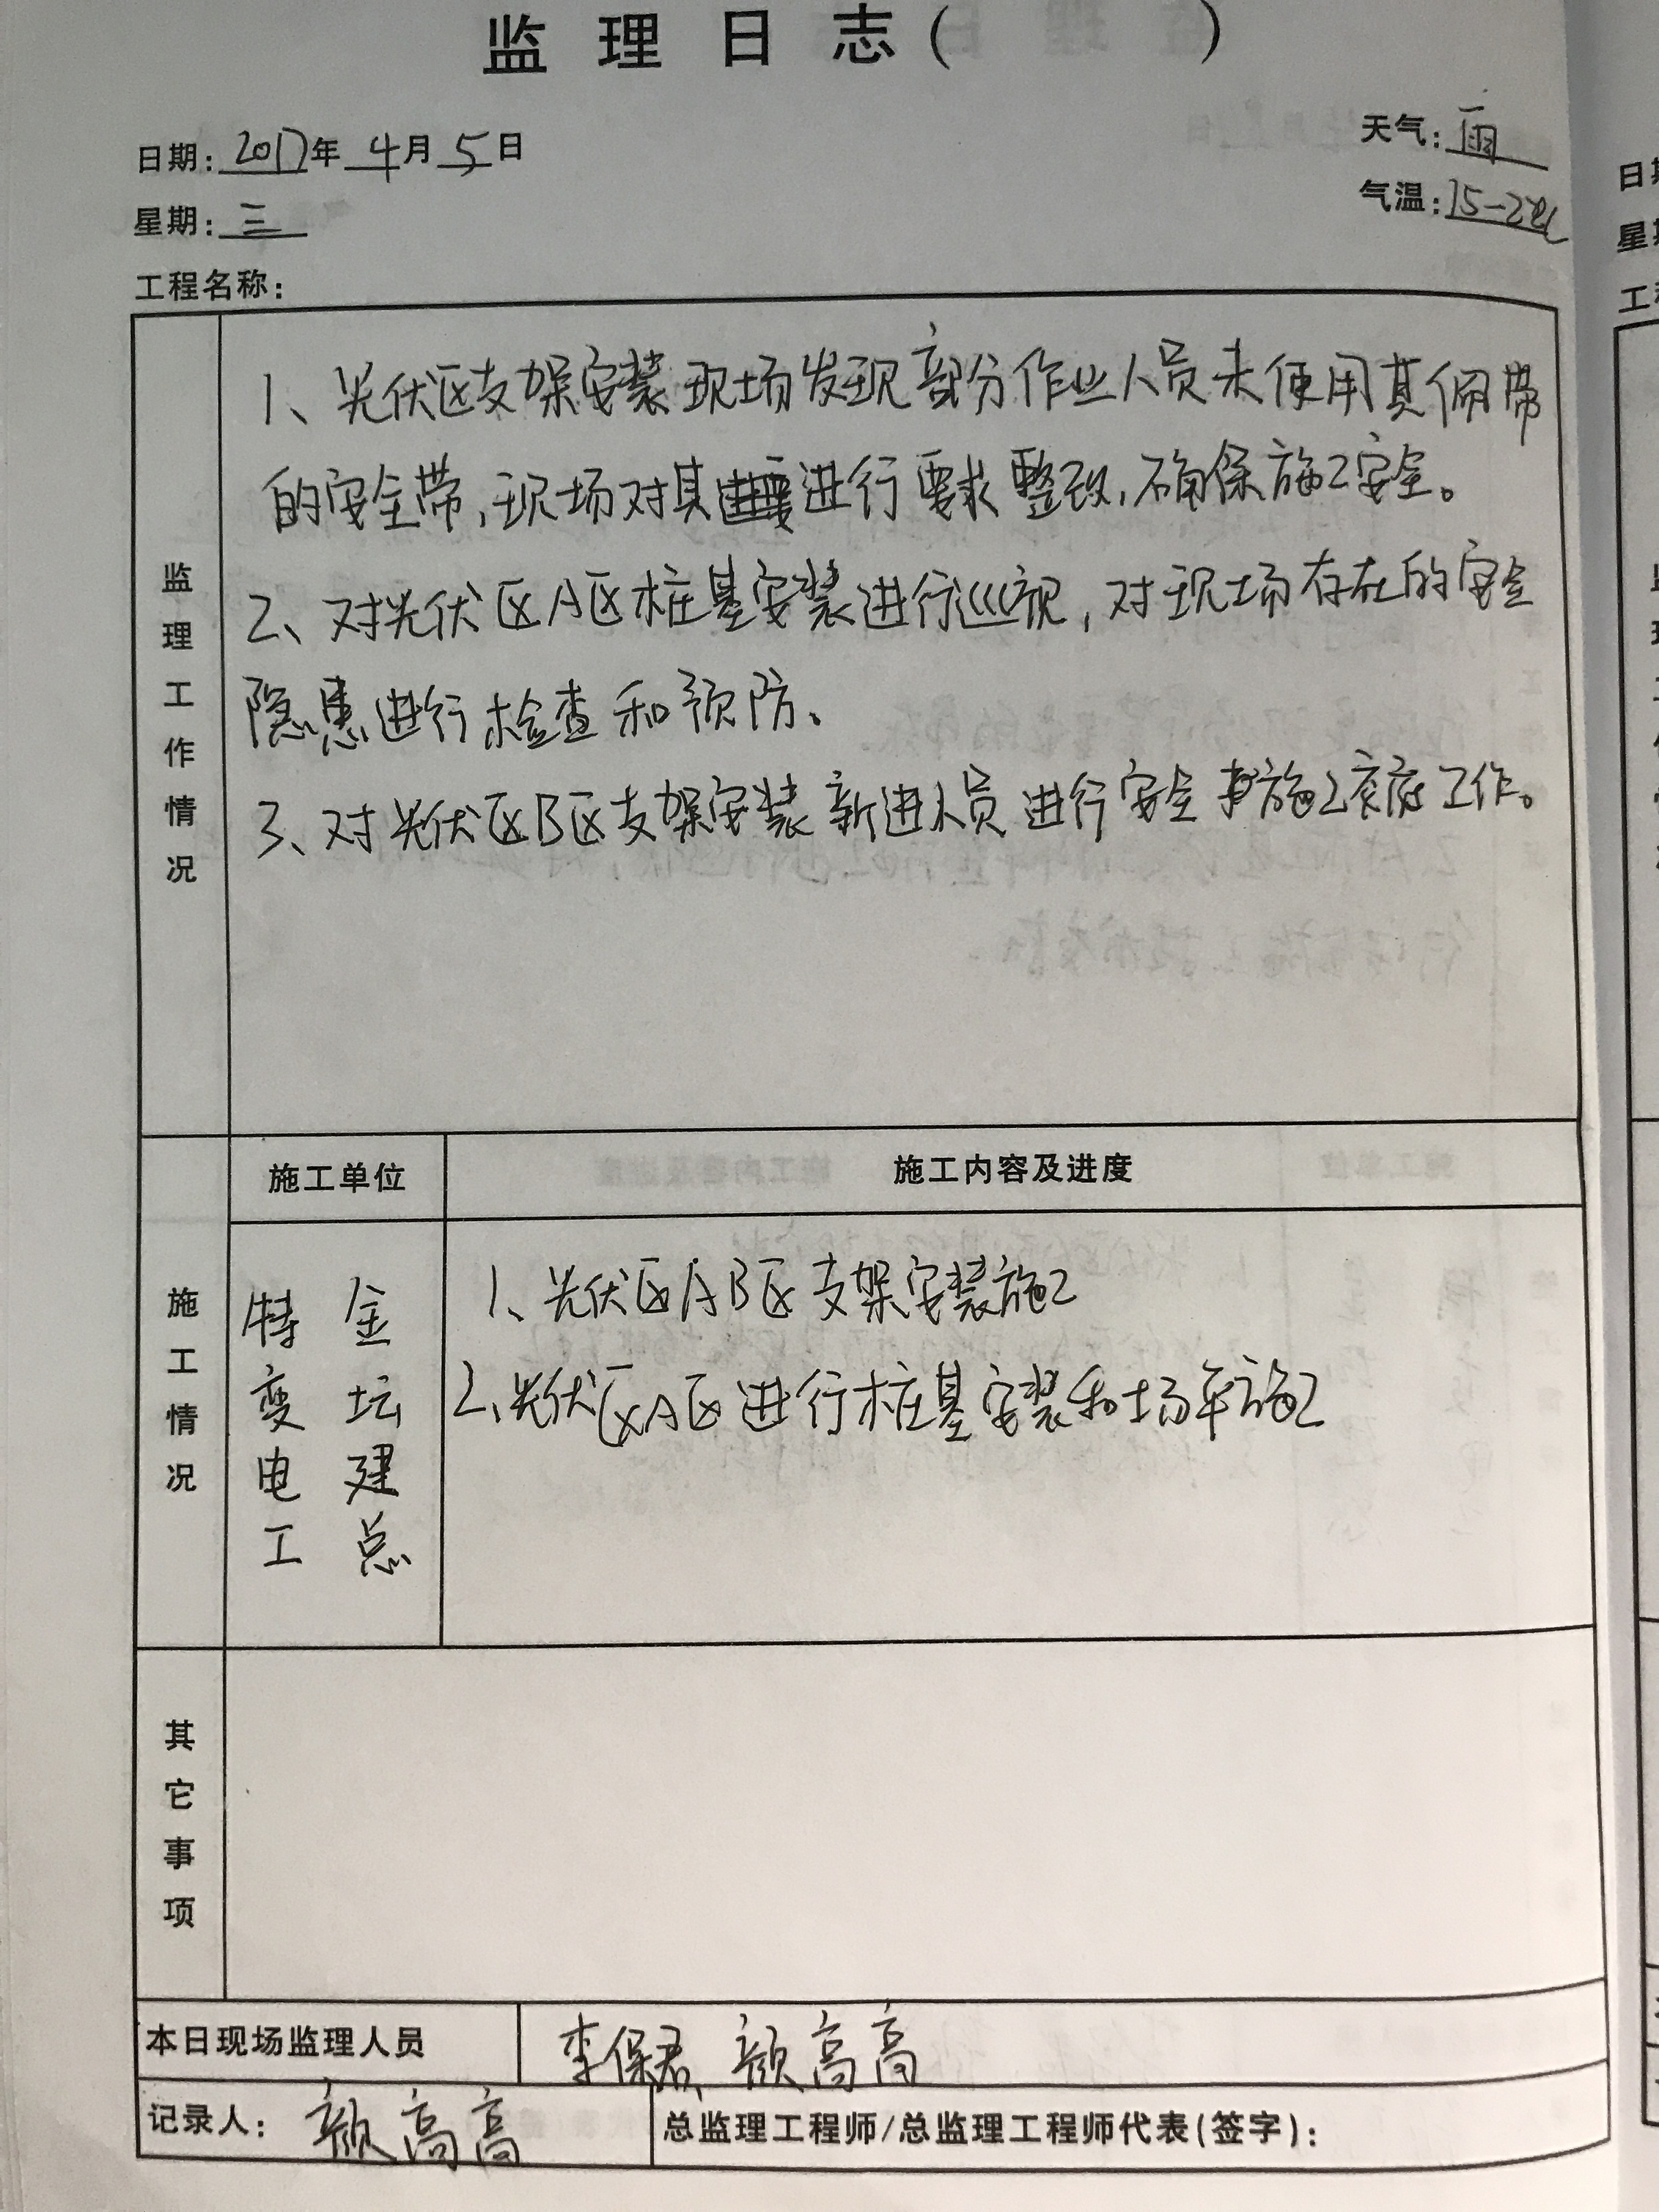 监理日志( )
日期:2017年4月5日
天气:雨
星期:三
气温:15-2℃
工程名称:
监理工作情况
1、光伏区支架安装现场发现部分作业人员未使用其佩带
的安全带,现场对其进行要求整改,确保施工安全。
2、对光伏区A区桩基安装进行巡视,对现场存在的安全
隐患进行检查和预防。
3、对光伏区B区支架安装新进人员进行安全施工交底工作。
施工单位
施工内容及进度
施工情况
特变电工
金坛建总
1、光伏区AB区支架安装施工
2、光伏区A区进行桩基安装和场平施工
其它事项
本日现场监理人员
李保君、颜高高
记录人:颜高高
总监理工程师/总监理工程师代表(签字):